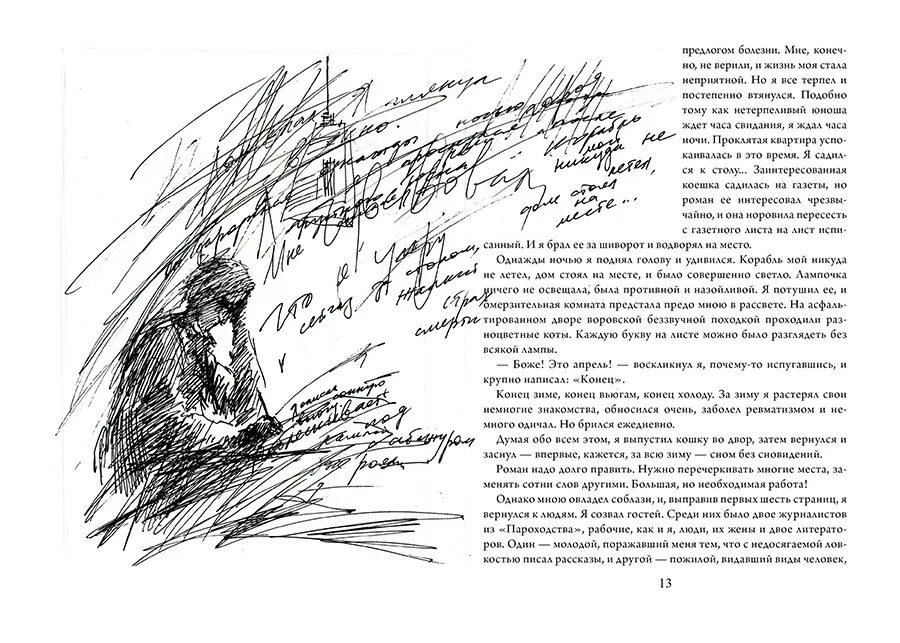 глянул
в окно.
однажды ночью
Корабль
мой
никуда не
летел,
дом стоял
на
месте...
Мне
что я умру
страх
смерти
под
абажуром
предлогом болезни. Мне, конеч-
но, не верили, и жизнь моя стала
неприятной. Но я все терпел и
постепенно втянулся. Подобно
тому как нетерпеливый юноша
ждет часа свидания, я ждал часа
ночи. Проклятая квартира успо-
каивалась в это время. Я садил-
ся к столу... Заинтересованная
коешка садилась на газеты, но
роман ее интересовал чрезвы-
чайно, и она норовила пересесть
с газетного листа на лист испи-
санный. И я брал ее за шиворот и водворял на место.
Однажды ночью я поднял голову и удивился. Корабль мой никуда
не летел, дом стоял на месте, и было совершенно светло. Лампочка
ничего не освещала, была противной и назойливой. Я потушил ее, и
омерзительная комната предстала предо мною в рассвете. На асфаль-
тированном дворе воровской беззвучной походкой проходили раз-
ноцветные коты. Каждую букву на листе можно было разглядеть без
всякой лампы.
— Боже! Это апрель! — воскликнул я, почему-то испугавшись, и
крупно написал: «Конец».
Конец зиме, конец вьюгам, конец холоду. За зиму я растерял свои
немногие знакомства, обносился очень, заболел ревматизмом и не-
много одичал. Но брился ежедневно.
Думая обо всем этом, я выпустил кошку во двор, затем вернулся и
заснул — впервые, кажется, за всю зиму — сном без сновидений.
Роман надо долго править. Нужно перечеркивать многие места, за-
менять сотни слов другими. Большая, но необходимая работа!
Однако мною овладел соблазн, и, выправив первых шесть страниц, я
вернулся к людям. Я созвал гостей. Среди них было двое журналистов
из «Пароходства», рабочие, как и я, люди, их жены и двое литерато-
ров. Один — молодой, поражавший меня тем, что с недосягаемой лов-
костью писал рассказы, и другой — пожилой, видавший виды человек,
13